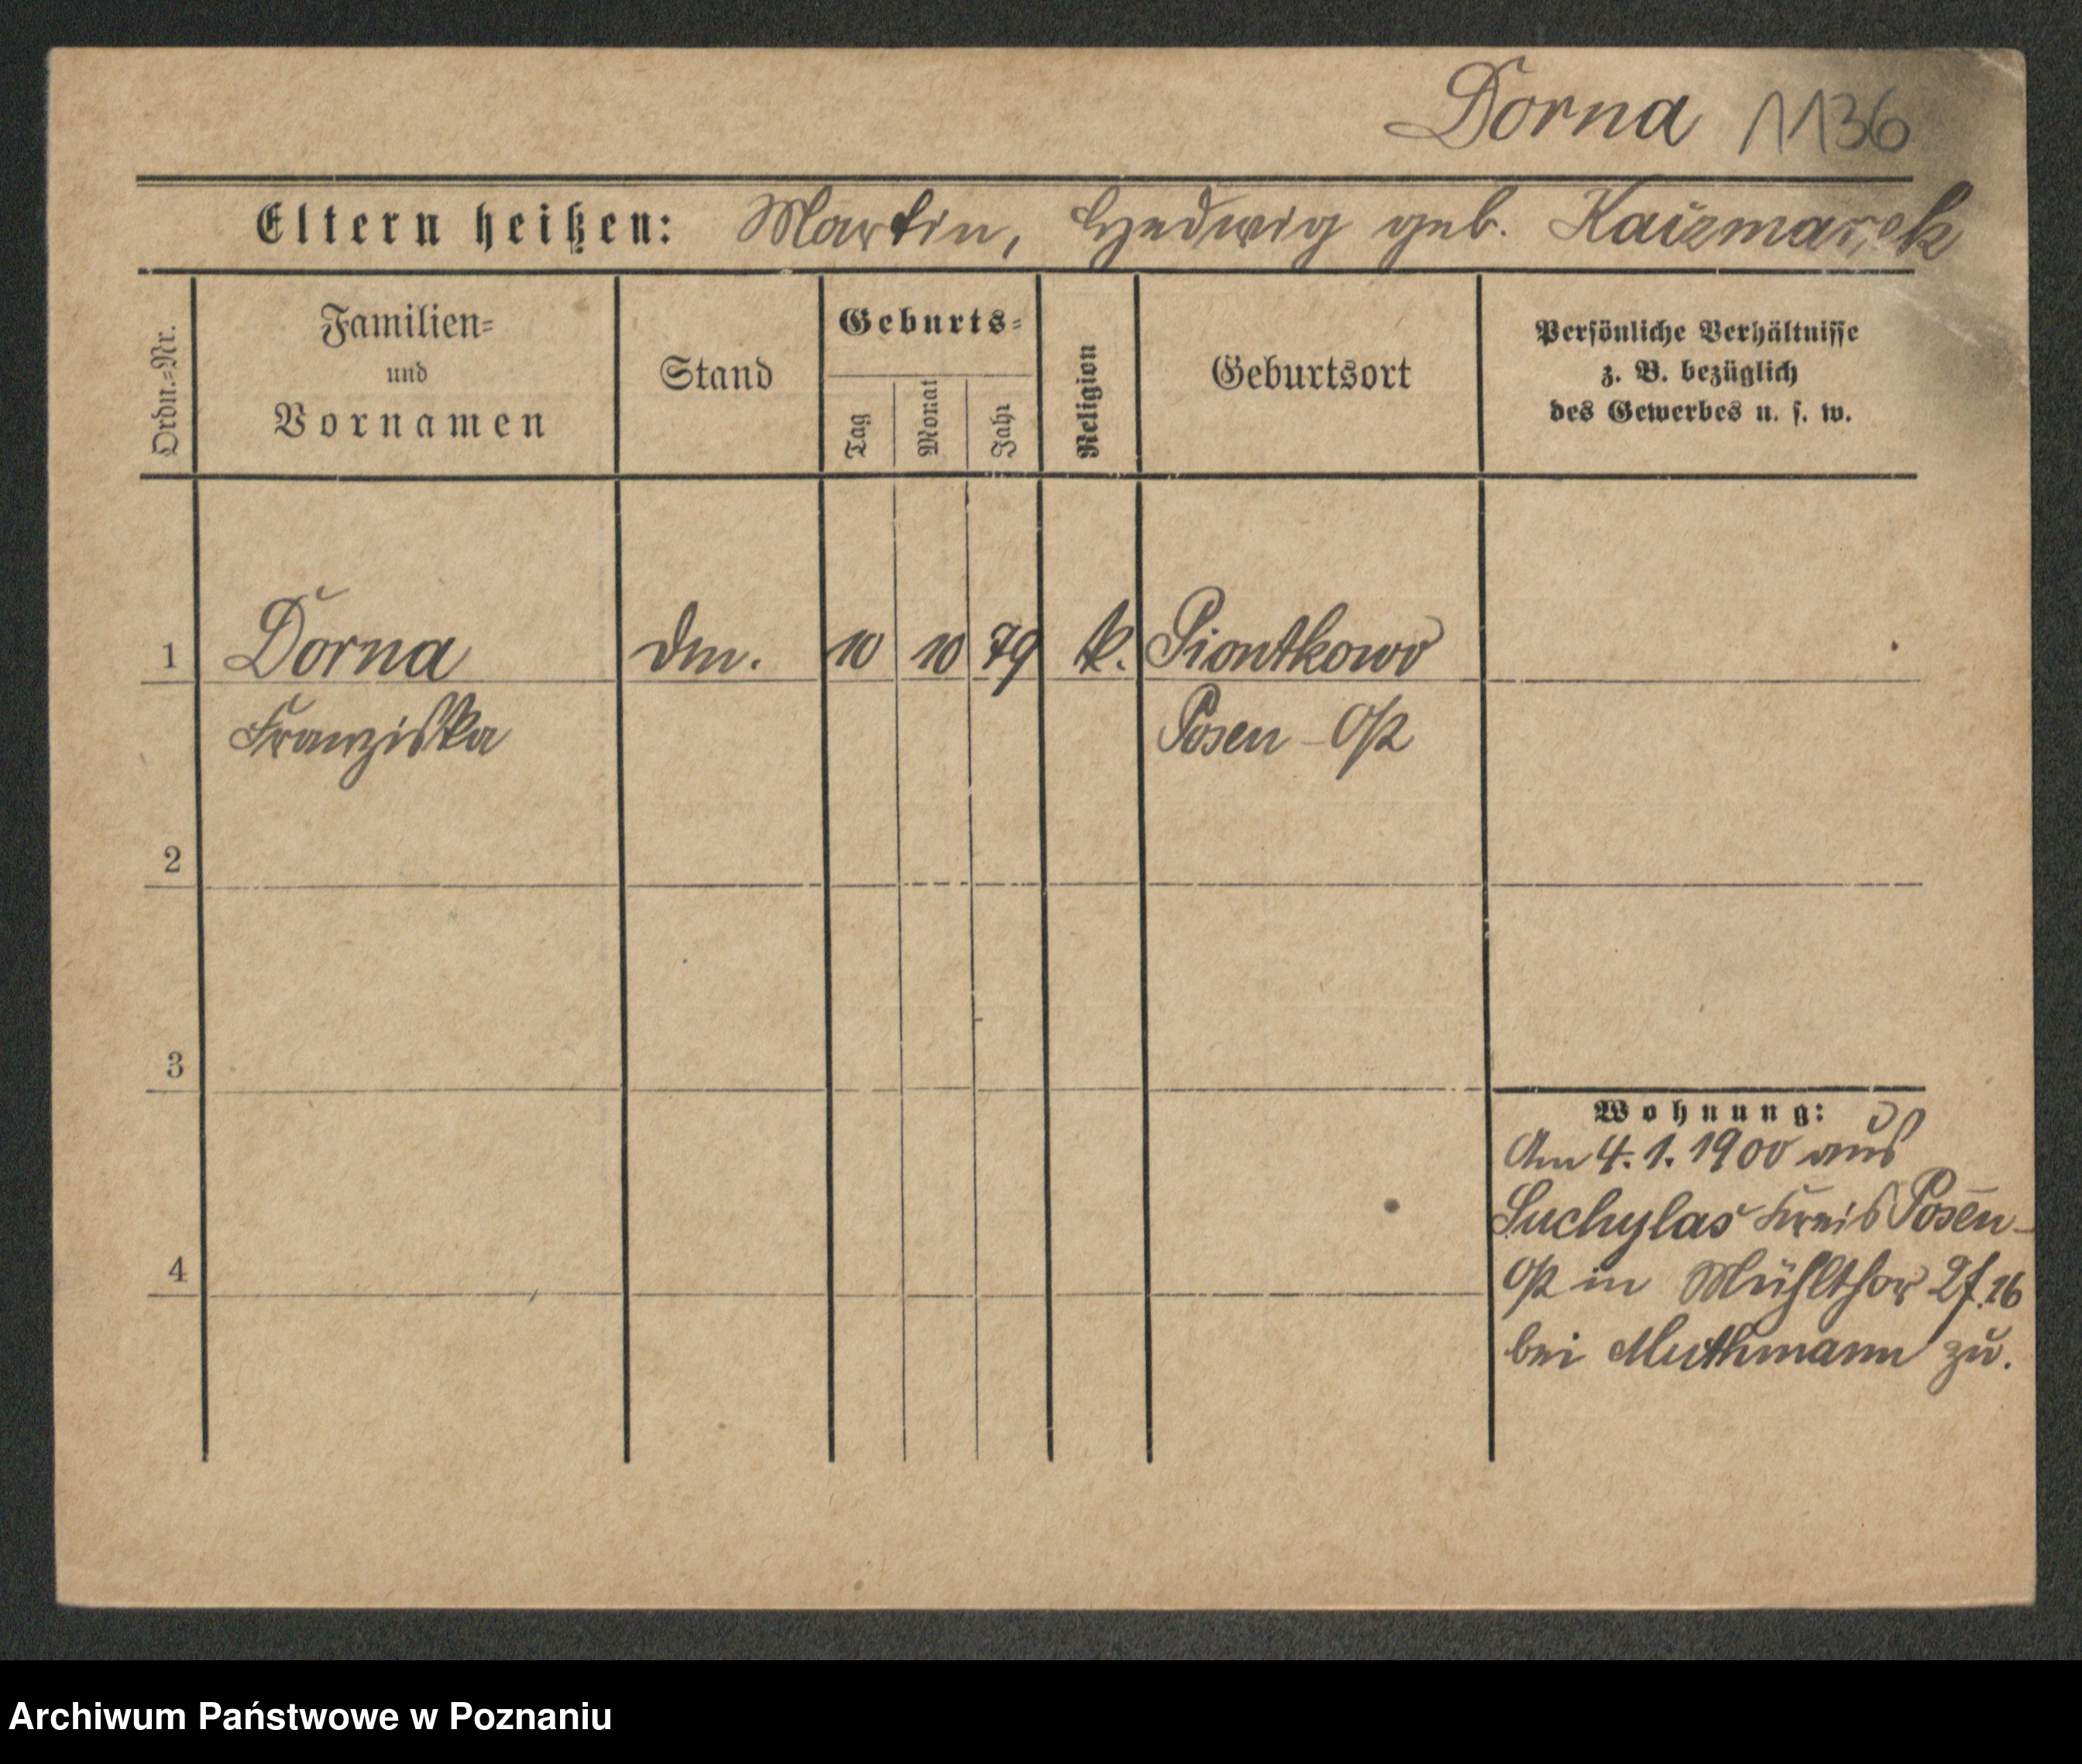 Dorna 1136
Eltern heißen: Martin, Hedwig geb. Kaizmarek
Ordn.=Nr. Familien= und Vornamen Stand Geburts= Tag Monat Jahr Religion Geburtsort Persönliche Verhältnisse z. B. bezüglich des Gewerbes u. s. w.
1 Dorna 10 10 79 k. Piontkowo
Franziska Posen - Ost
2
3
Wohnung:
Am 4. 1. 1900 aus
Suchylas Kreis Posen-
4 Ost in Mühlthor 16
bei Muthmann zu.
Archiwum Państwowe w Poznaniu